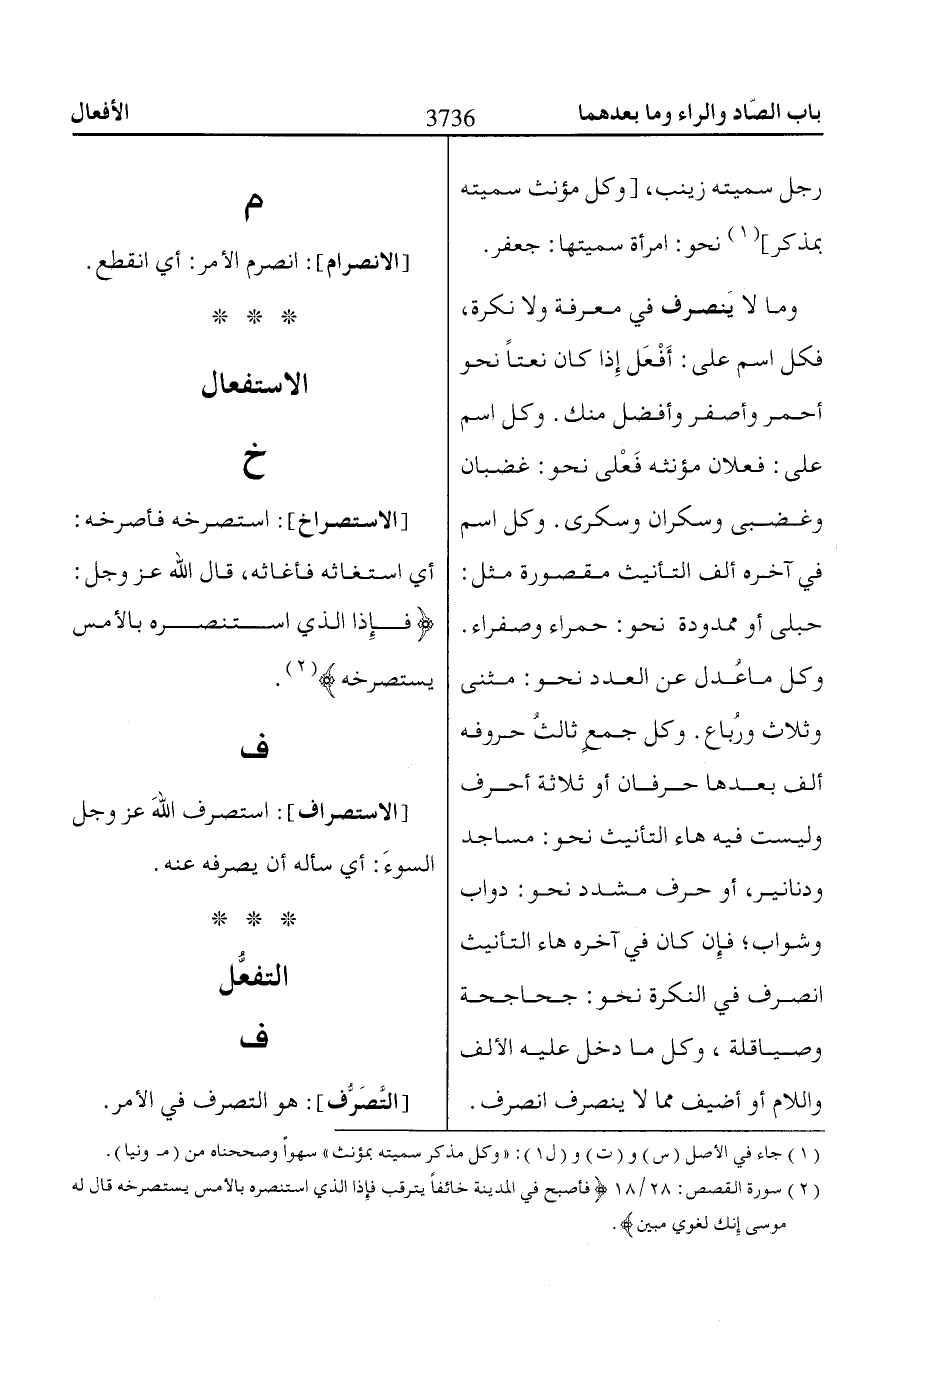 باب الصّاد والراء وما بعدهما 3736 الأفعال
رجل سميته زينب، [وكل مؤنث سميته
بمذكر](١) نحو: امرأة سميتها: جعفر.
وما لا يَنصرف في معرفة ولا نكرة،
فكل اسم على: أَفْعَل إذا كان نعتاً نحو
أحمر وأصفر وأفضل منك. وكل اسم
على: فعلان مؤنثه فَعْلى نحو: غضبان
وغضبى وسكران وسكرى. وكل اسم
في آخره ألف التأنيث مقصورة مثل:
حبلى أو ممدودة نحو: حمراء وصفراء.
وكل ماعُدل عن العدد نحو: مثنى
وثلاث ورُباع. وكل جمعٍ ثالثُ حروفه
ألف بعدها حرفان أو ثلاثة أحرف
وليست فيه هاء التأنيث نحو: مساجد
ودنانير، أو حرف مشدد نحو: دواب
وشواب؛ فإن كان في آخره هاء التأنيث
انصرف في النكرة نحو: جحاجحة
وصياقلة، وكل ما دخل عليه الألف
واللام أو أضيف مما لا ينصرف انصرف.
م
[الانصرام]: انصرم الأمر: أي انقطع.
* * *
الاستفعال
خ
[الاستصراخ]: استصرخه فأصرخه:
أي استغاثه فأغاثه، قال الله عز وجل:
﴿فإذا الذي استنصره بالأمس
يستصرخه﴾(٢).
ف
[الاستصراف]: استصرف اللهَ عز وجل
السوءَ: أي سأله أن يصرفه عنه.
* * *
التفعُّل
ف
[التَّصَرُّف]: هو التصرف في الأمر.
(١) جاء في الأصل (س) و(ت) و(ل١): «وكل مذكر سميته بمؤنث» سهواً وصححناه من (مـ ونيا).
(٢) سورة القصص: ١٨/٢٨ ﴿فأصبح في المدينة خائفاً يترقب فإذا الذي استنصره بالأمس يستصرخه قال له
موسى إنك لغوي مبين﴾.